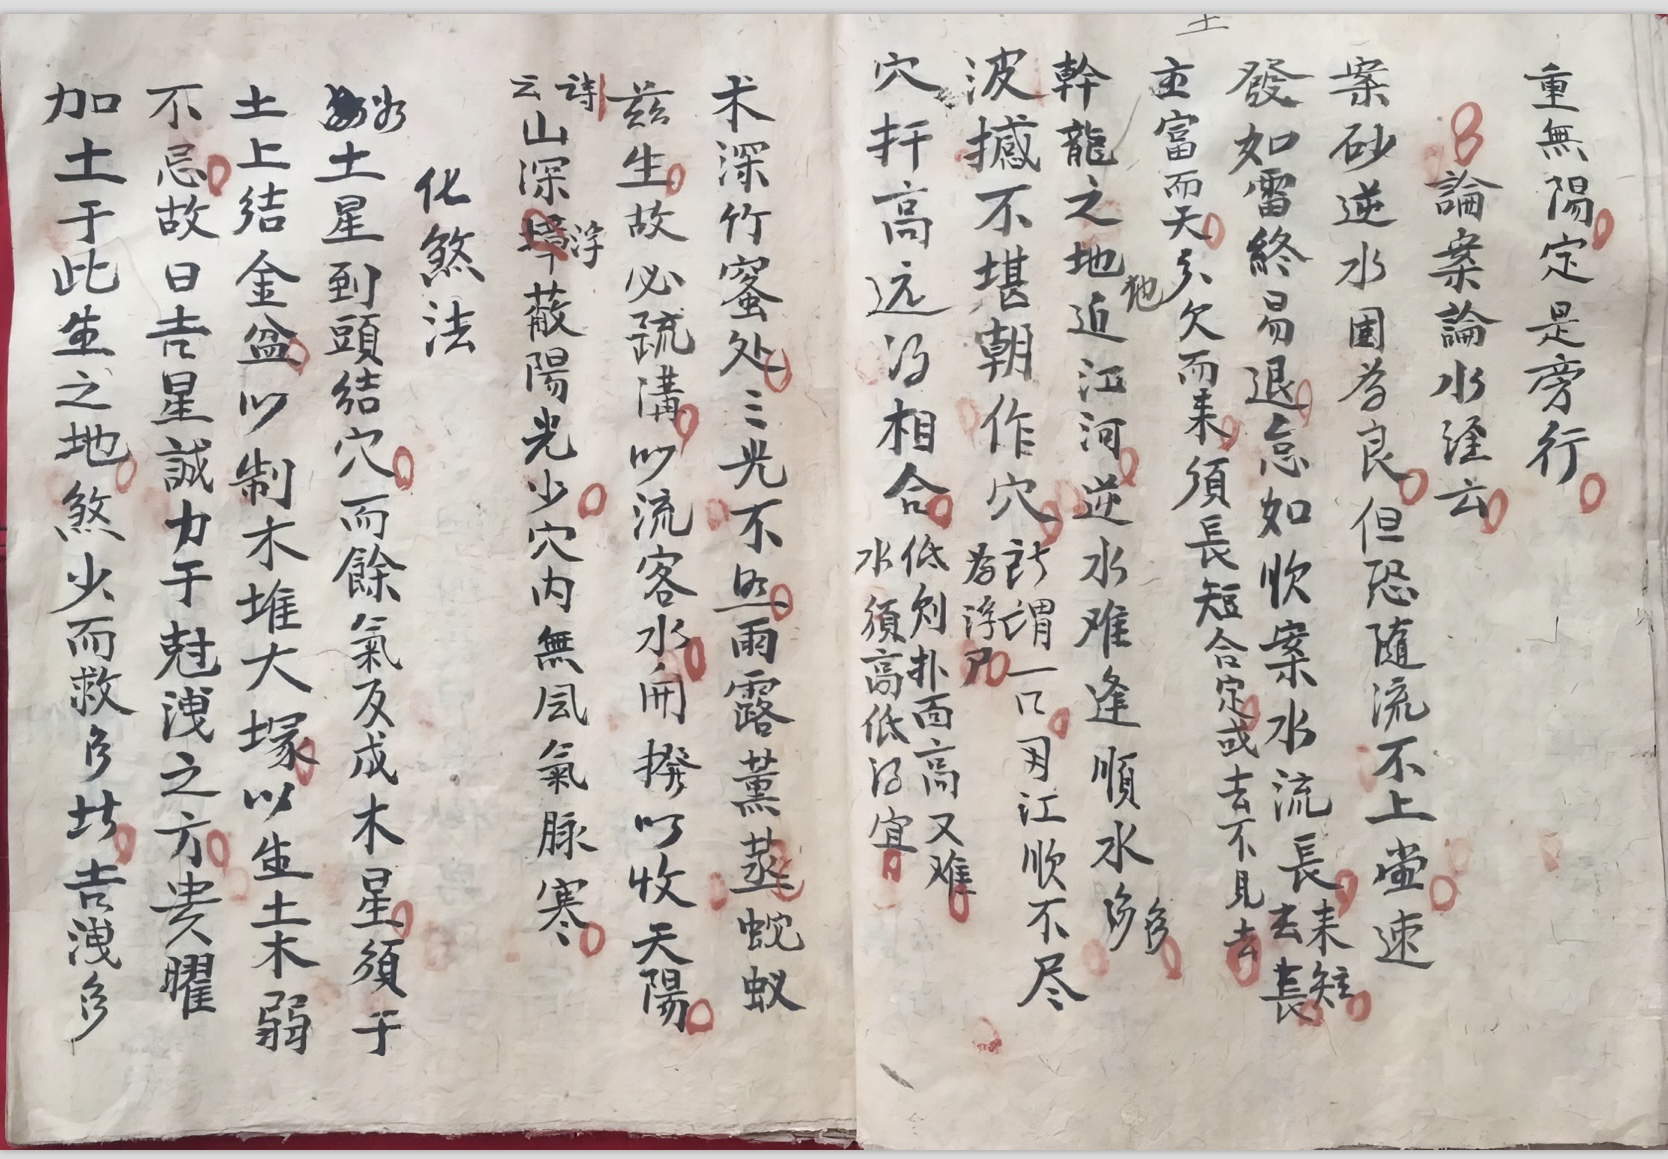 重無陽定是旁行
論案論水經云
案砂逆水圍為良但恐隨流不上堂速
發如雷終易退怠如吹案水流長去来
長短
主富而夭
欠而来須長短合定或去不見去
幹龍之地近江河逆水难逢順水多
波撼不堪朝作穴
所謂一口因江順不尽
為浮尸
穴扦高远得相合
低則扑面高又难
水須高低得宜
木深竹蜜处三光不照雨露薰蒸蜿蚁
兹生故必疏溝以流客水開撥以收天陽
詩云
山深浮蔽陽光少穴内無風氣脉寒
化煞法
如土星到頭結穴而餘氣反成木星須于
土上結金盆以制木堆大塚以生土木弱
不忌故曰吉星誠力于尅洩之方贵曜
加土于此生之地煞少而救多故吉洩多